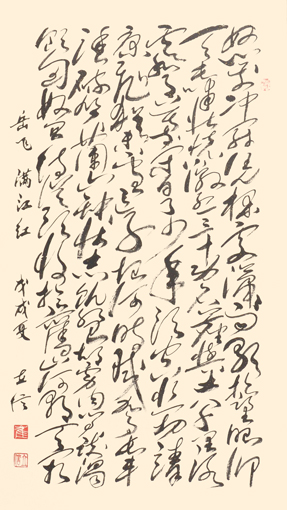 怒发冲冠凭栏处潇潇雨歇抬望眼仰
天长啸壮怀激烈三十功名尘与土八千里路
云和月莫等闲白了少年头空悲切靖
康耻犹未雪臣子恨何时灭驾长车
踏破贺兰山缺壮志饥餐胡虏肉笑谈渴
饮匈奴血待从头收拾旧山河朝天阙
岳飞 满江红
戊戌夏